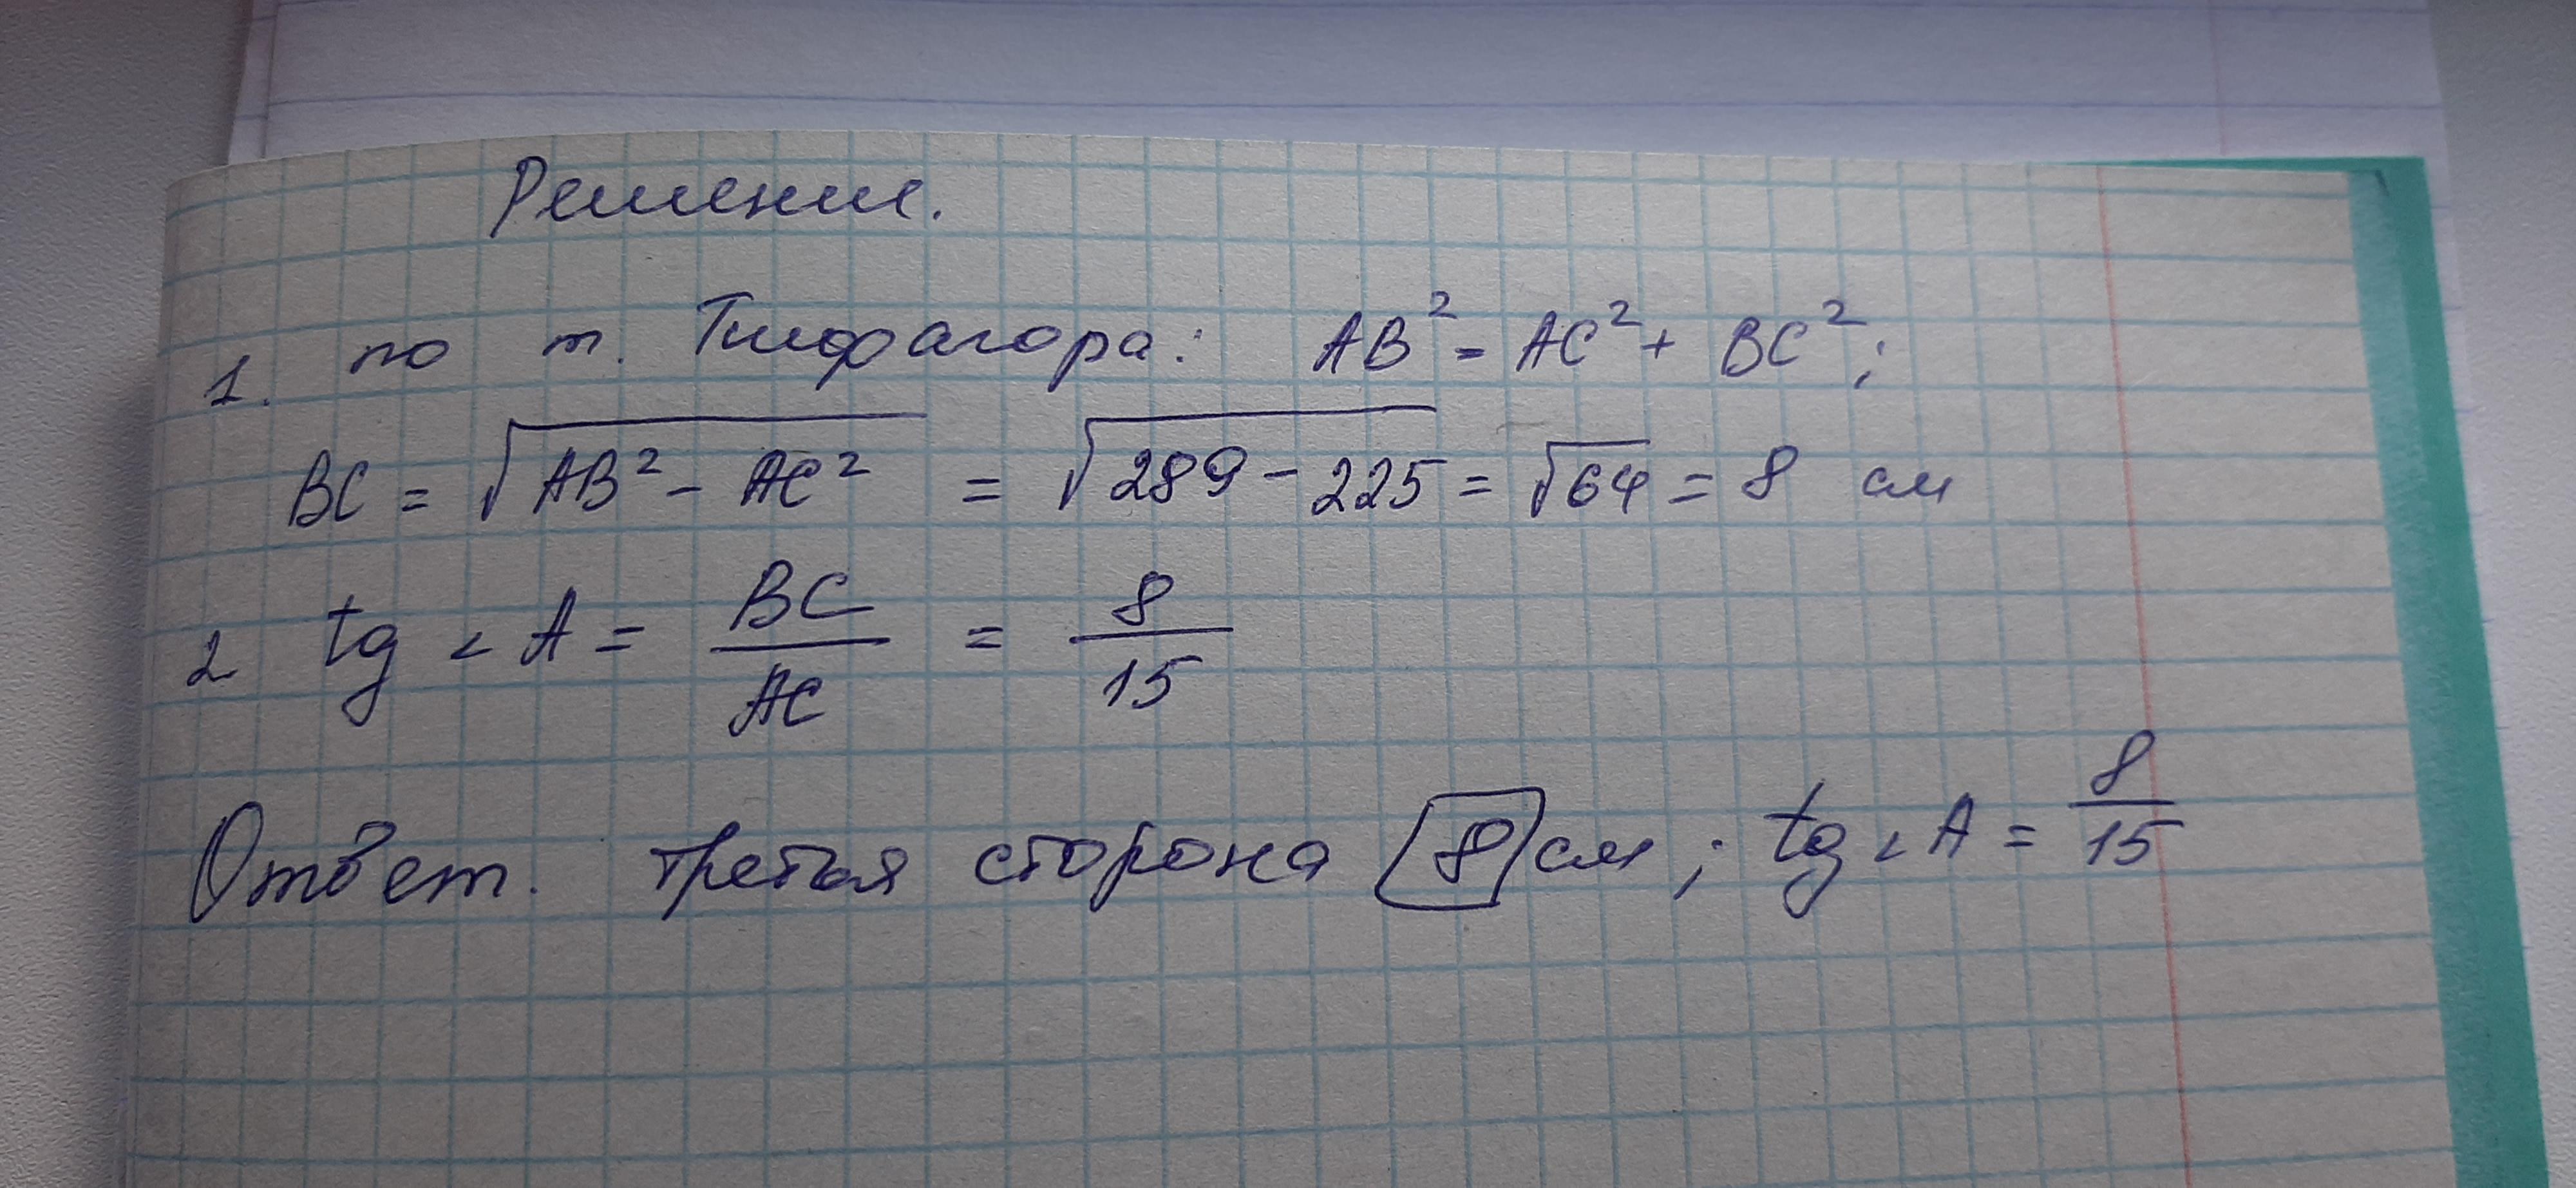 Решение.
1. по т. Пифагора: AB² = AC² + BC²;
BC = √(AB² - AC²) = √(289 - 225) = √64 = 8 см
2 tg ∠A = BC/AC = 8/15
Ответ. третья сторона 8 см; tg ∠A = 8/15